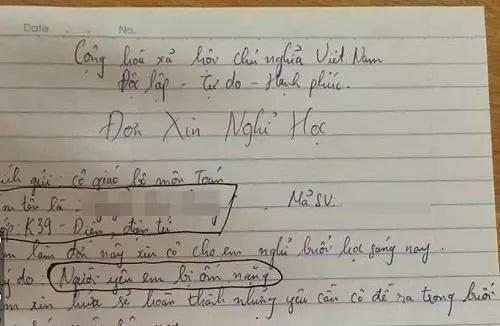 Date No.
Cộng hoà xả hôi chủ nghĩa Việt Nam
Độc lập - tự do - Hạnh phúc.
Đơn Xin Nghỉ Học
ính gửi: cô giáo bộ môn Toán
m tên là: Mã SV:
ớp: K39 - Điện, điện tử
m làm đơn này xin cô cho em nghỉ buổi học sáng nay.
ý do: Người yêu em bị ốm nặng
m xin hứa sẽ hoàn thành những yêu cầu cô đề ra trong buổi